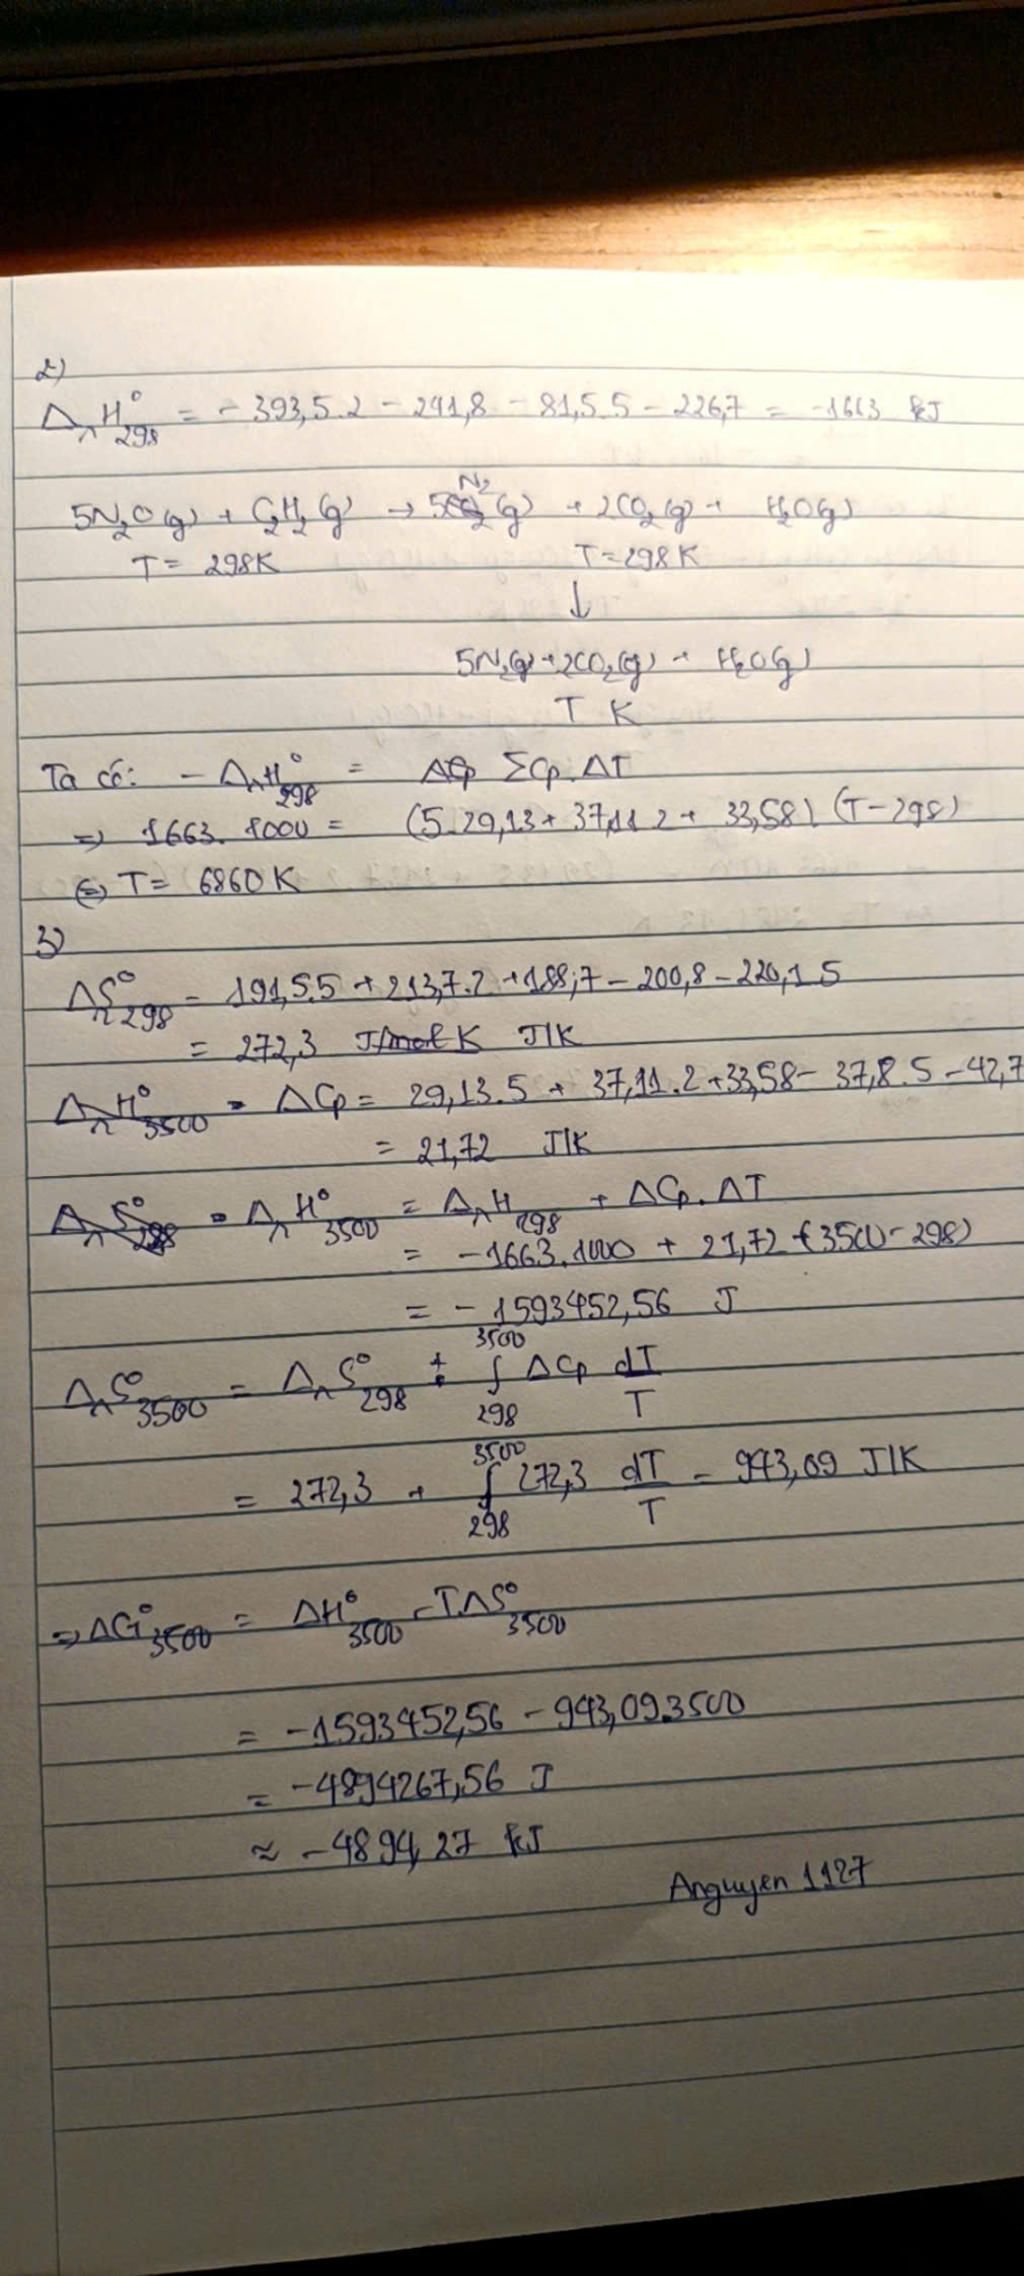 2)
Δ_r H°_298 = - 393,5.2 - 241,8 - 81,5.5 - 226,7 = -1663 kJ
5N₂O(g) + C₂H₂(g) → 5N₂(g) + 2CO₂(g) + H₂O(g)
T = 298K T = 298K
↓
5N₂(g) + 2CO₂(g) + H₂O(g)
T K
Ta có: - Δ_r H°_298 = ΣCp.ΔT
⇒ 1663.1000 = (5.29,13 + 37,11.2 + 33,58).(T - 298)
⇔ T = 6860 K
3)
Δ_r S°_298 = 191,5.5 + 213,7.2 + 188,7 - 200,8 - 220,1.5
= 272,3 J/K
ΔCp = 29,13.5 + 37,11.2 + 33,58 - 37,8.5 - 42,7
= 21,72 J/K
Δ_r H°_3500 = Δ_r H_298 + ΔCp.ΔT
= -1663.1000 + 21,72 (3500 - 298)
= - 1593452,56 J
Δ_r S°_3500 = Δ_r S°_298 + ∫_298^3500 ΔCp dT/T
= 272,3 + ∫_298^3500 272,3 dT/T = 943,09 J/K
⇒ ΔG°_3500 = ΔH°_3500 - T.ΔS°_3500
= -1593452,56 - 943,09.3500
= -4894267,56 J
≈ -4894,27 kJ
Anguyen 1127